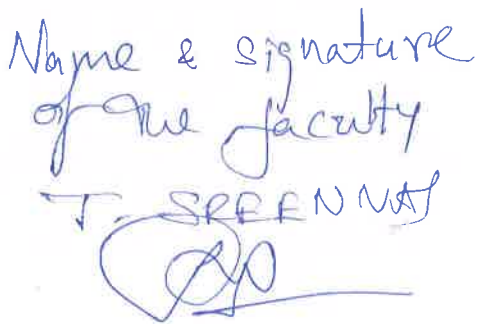 Name & signature
of the faculty
T. SREENNAS